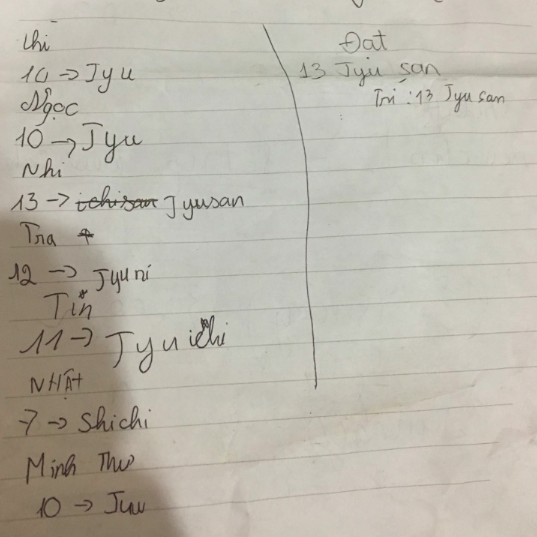 Chi
10 → Jyu
Ngọc
10 → Jyu
Nhi
13 → ichisan Jyusan
Tra
12 → Jyuni
Tín
11 → Jyuichi
NHẬt
7 → Shichi
Minh Thư
10 → Juu
Đạt
13 Jyu san
Trí : 13 Jyu san